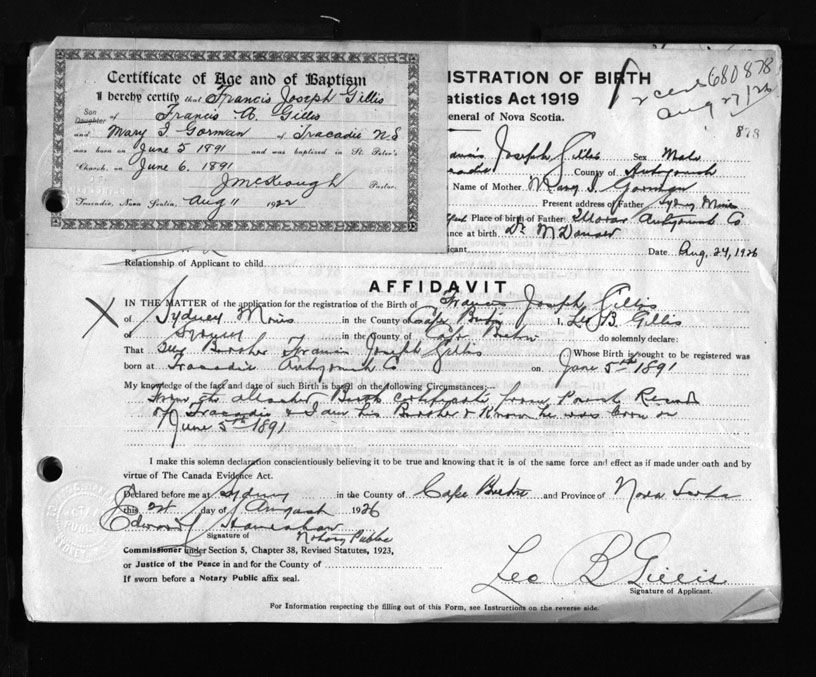 Certificate of Age and of Baptism
I hereby certify that Francis Joseph Gillis
Son
Daughter of Francis A. Gillis
and Mary I Gorman of Tracadie N.S
was born on June 5 1891 and was baptized in St. Peter's
Church on June 6. 1891
J McKeough Pastor.
Tracadie, Nova Scotia, Aug 11 1922
ISTRATION OF BIRTH
680878
atistics Act 1919
Aug 27/26
eneral of Nova Scotia.
878
ancis Joseph Gillis Sex Male
County of Antigonish
Name of Mother Mary I. Gorman
Present address of Father Sydney Mines
Place of birth of Father Antigonish Co
ance at birth Dr
icant Date Aug. 24, 1926
Relationship of Applicant to child
AFFIDAVIT
IN THE MATTER of the application for the registration of the Birth of Francis Joseph Gillis
of Sydney Mines in the County of Cape Breton I, Leo B. Gillis
of Sydney in the County of Cape Breton do solemnly declare:
That My Brother Francis Joseph Gillis Whose Birth is sought to be registered was
born at Tracadie Antigonish Co on June 5th 1891
My knowledge of the fact and date of such Birth is based on the following Circumstances:—
From the attached Birth Certificate from Parish Records
of Tracadie & I am his Brother & Know he was born on
June 5th 1891
I make this solemn declaration conscientiously believing it to be true and knowing that it is of the same force and effect as if made under oath and by
virtue of The Canada Evidence Act.
Declared before me at Sydney in the County of Cape Breton and Province of Nova Scotia
this day of August 1926
Edward
Signature of Notary Public
Commissioner under Section 5, Chapter 38, Revised Statutes, 1923,
or Justice of the Peace in and for the County of
If sworn before a Notary Public affix seal.
Leo B Gillis
Signature of Applicant.
For Information respecting the filling out of this Form, see Instructions on the reverse side.